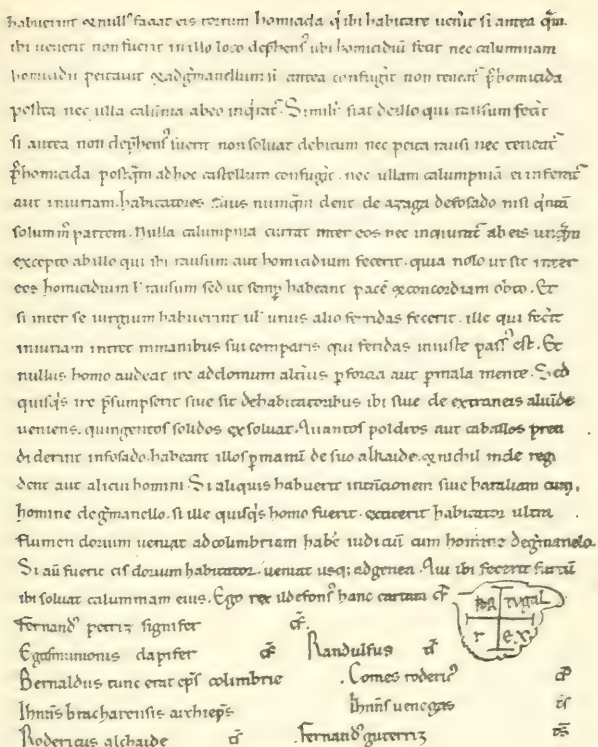 habuerint & null⁹ faciat eis tortum homicida q̇ ibi habitare uen̄it si antea q̄m
ibi uenerit non fuerit in illo loco dep̄hens⁹ ubi homicidiū fecit nec calumniam
homicidii peitauit & ad g̃manellum si antea confugit non teneat᷑ p̄ homicida
postea nec ulla calūnia ab eo inq̇rat᷑. Similit᷑ fiat de illo qui rausum fecit
si antea non dep̄hens⁹ fuerit non soluat debitum nec peita rausi nec teneat᷑
p̄ homicida postq̄m ad hoc castellum confugit. nec ullam calumpniā ei inferat᷑
aut iniuriam. habitatores tuus numq̄m dent de azaga de fosado nisi q̇ntā
solum̄m partem. Nulla calumpnia currat inter eos nec inquirat᷑ ab eis umq̄m
excepto ab illo qui ibi rausum aut homicidium fecerit. quia nolo ut sit inter
eos homicidium ł rausum sed ut semp̱ habeant pacē & concordiam obto. Et
si inter se iurgium habuerint uł unus alio feridas fecerit. ille qui fecit
iniuriam intret in manibus sui comparis qui feridas iniuste pass⁹ est. Et
nullus homo audeat ire ad domum alcius p̱ forcia aut p̱ mala mente. Sed
quisq̇s ire p̄sumpserit siue sit de habitatoribus ibi siue de extraneis aliūde
ueniens. quingentos solidos exsoluat. Quantos poldros aut caballos pren
diderint in fosado. habeant illos p̱ manū de suo alkaide. & nichil inde regi
dent aut alicui homini. Si aliquis habuerit intēcionem siue baraliam cum
homine de g̃manello. si ille quisq̇s homo fuerit. exciterit habitator ultra
flumen dorium ueniat ad columbriam habē iudiciū cum homine de g̃manelo.
Si aū fuerit cis dorium habitator. ueniat usq; ad genea. Qui ibi fecerit furtū
ibi soluat calumniam eius. Ego rex ildefons⁹ hanc cartam cf̄
PA TVGAL
r ex
Fernand⁹ petriz signifer cf̄.
Egas munionis dapifer cf̄ Randulfus ts̄
Bernaldus tunc erat ep̄s columbrie . Comes roderic⁹ cf̄
Ihn̄is bracharensis archiep̄s Ihn̄is uenegas ts̄
Rodericus alchaide ts̄ . Fernand⁹ guterriz ts̄